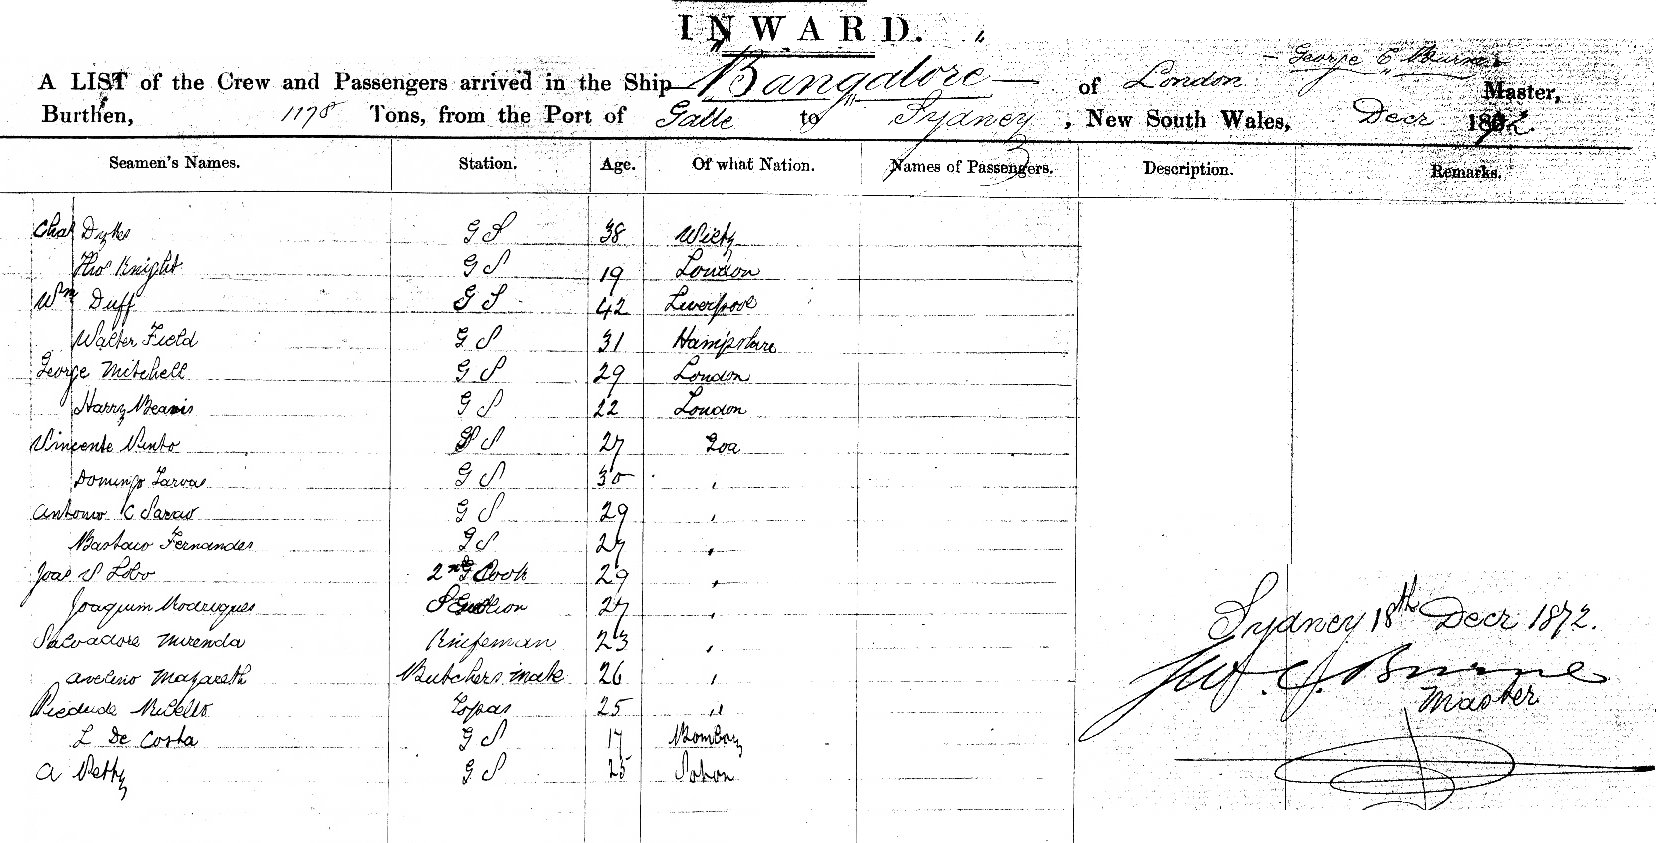 INWARD.
George E Burne
A LIST of the Crew and Passengers arrived in the Ship "Bangalore" of London Master,
Burthen, 1178 Tons, from the Port of Galle to Sydney, New South Wales, Decr 1872.
Seamen's Names. Station. Age. Of what Nation. Names of Passengers. Description. Remarks.
Chas Dykes G S 38
Thos Knight G S 19 London
Wm Duff G S 42 Liverpool
Walter Field G S 31 Hampshire
George Mitchell G S 29 London
Harry Beavis G S 22 London
Vincente Pinto G S 27 Goa
Domingo G S 30 "
Antonio C G S 29 "
Fernandes G S 27 "
Joas S Lobo 2nd Cook 29 "
Joaquim Rodrigues Scullion 27 "
Salvadore Mirenda Knifeman 23 "
Avelino Mazareth Butchers mate 26 "
Piedade Topas 25 "
L De Costa G S 17 Bombay
A G S 25
Sydney 18th Decr 1872.
Burne
Master